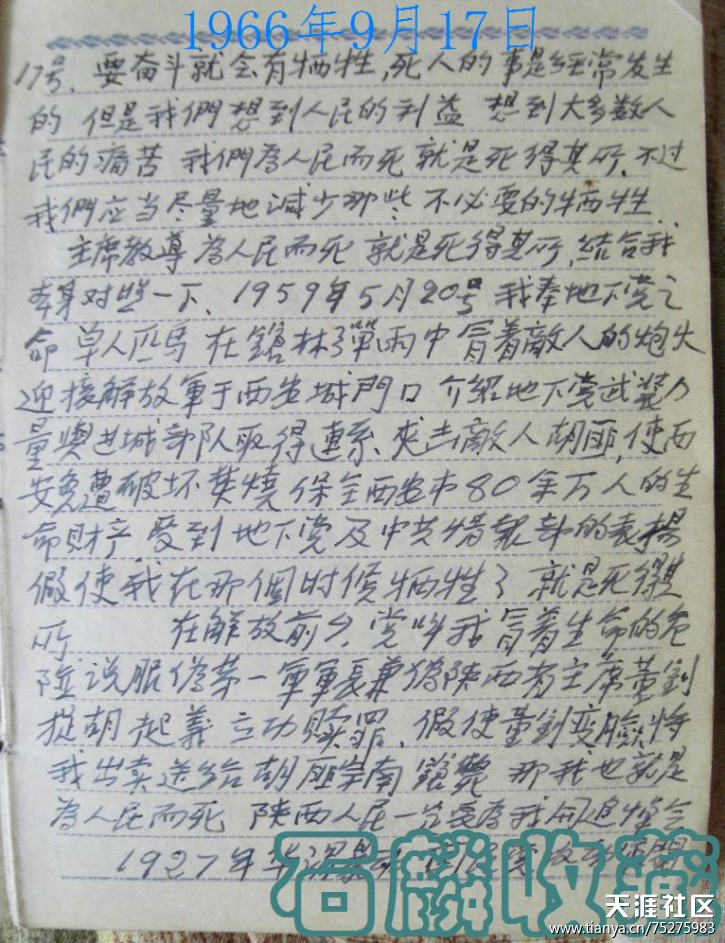 1966年9月17日
17号、要奋斗就会有牺牲,死人的事是经常发生
的 但是我們想到人民的利益 想到大多数人
民的痛苦 我們為人民而死 就是死得其所、不过
我們应当尽量地减少那些 不必要的牺牲.
主席教導 為人民而死 就是死得其所,結合我
本身对照一下、1959年5月20号 我奉地下党之
命 单人匹馬 在鎗林彈雨中 冒着敵人的炮火
迎接解放軍于西安城門口 介紹地下党武裝力
量與进城部队取得連系、夹击敵人胡匪,使西
安免遭破坏焚燒 保全西安市80余万人的生
命財产 受到地下党及中共情報部的表揚
假使我在那個时候牺牲了 就是死得其
所 在解放前夕,党叫我冒着生命的危
险说服偽第一軍軍長兼偽陕西省主席董釗
捉胡起義 立功赎罪、假使董釗变臉将
我出卖送給胡匪宗南鎗斃 那我也就是
為人民而死 陕西人民一定要為我開追悼会
1927年
石麟收藏
天涯社区
www.tianya.cn/75275983